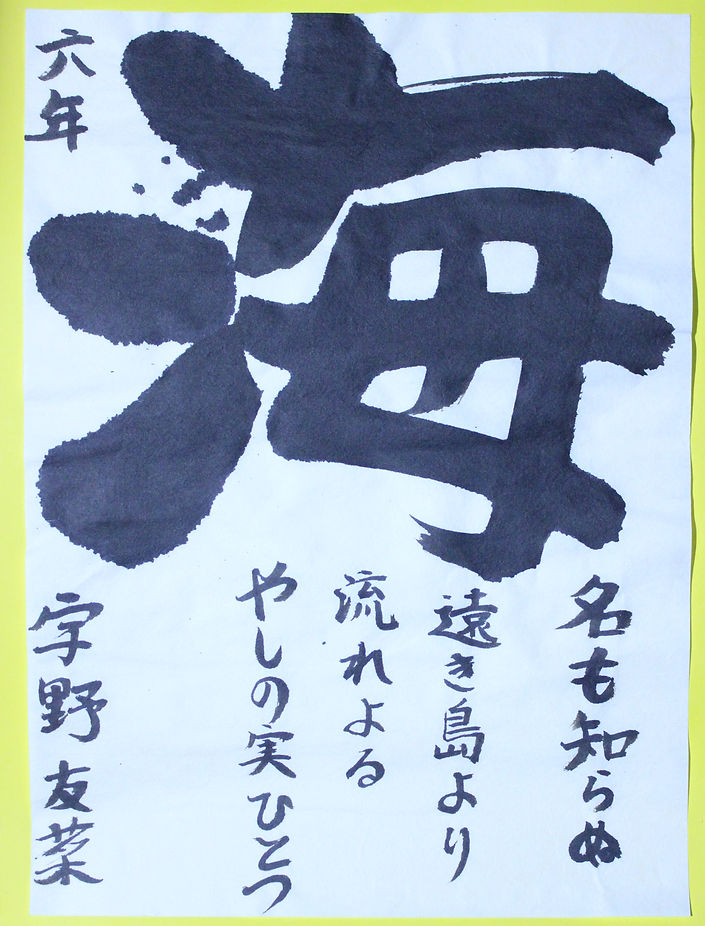 海
名も知らぬ
遠き島より
流れよる
やしの実ひとつ
六年
宇野友菜